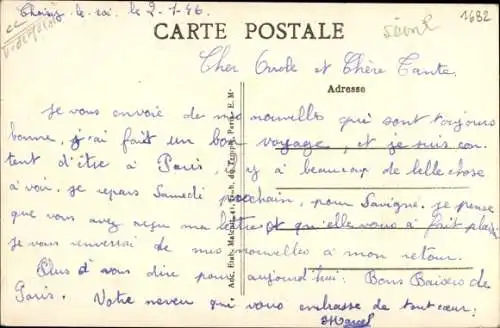 Choisy le roi le 2-1-46
1682
CARTE POSTALE
Cher Oncle et Chère Tante.
Adresse
Je vous envoie de mes nouvelles qui sont toujours
bonne, j'ai fait un bon voyage, et je suis con
tent d'être à Paris, il y à beaucoup de belle chose
à voir. Je repars Samedi prochain, pour Savigné. je pense
que vous avez reçu ma lettre et qu'elle vous à fait plaisir
Je vous enverrai de mes nouvelles à mon retour.
Plus à vous dire pour aujourd'hui. Bons Baisers de
Paris. Votre neveu qui vous embrasse de tout cœur.
Marcel